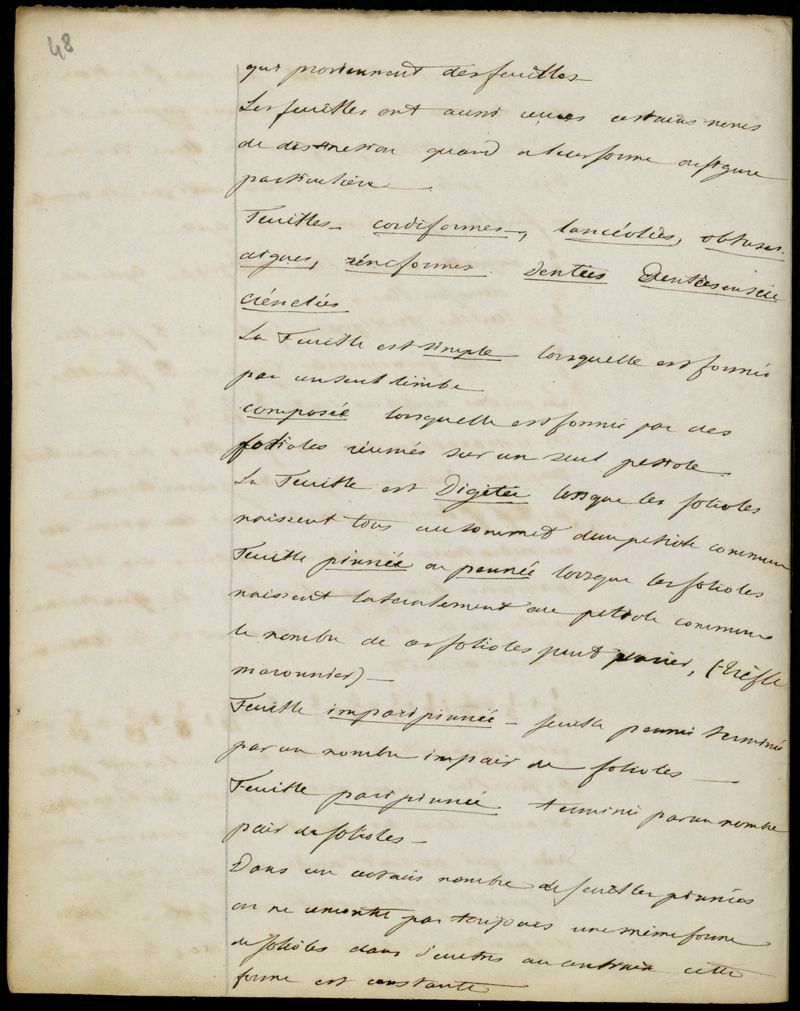 48
qui proviennent des feuilles
Les feuilles ont aussi certains noms
de distinction quand a leur forme ou figure
particulière
Feuilles cordiformes, lancéolées, obtuses
aigues, réniformes. Dentées Dentées en scie
crénelées
La Feuille est simple lorsquelle est formée
par un seul limbe
composée lorsquelle est formée par des
folioles réunies sur un seul petiole
La Feuille est Digitée lorsque les folioles
naissent tous au sommet d'un petiole commun
Feuille pinnée ou pennée lorsque les folioles
naissent lateralement au petiole commun
le nombre de ces folioles peut varier, (trèfle
maronnier) —
Feuille imparipinnée – feuille pennée terminée
par un nombre impair de folioles —
Feuille paripinnée terminée par un nombre
pair de folioles —
Dans un certain nombre de feuilles pinnées
on ne remontre pas toujours une même forme
de folioles dans d'autres au contraire cette
forme est constante